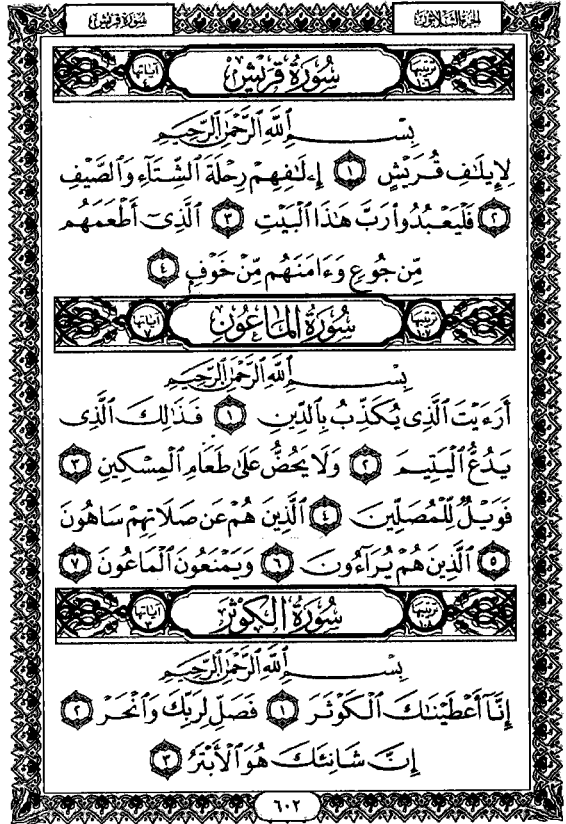 سُورَةُ قُرَيْشٍ الجُزْءُ الثَّلَاثُونَ
ترتيبها ١٠٦ سُورَةُ قُرَيْشٍ آياتها ٤
بِسْمِ ٱللَّهِ ٱلرَّحْمَٰنِ ٱلرَّحِيمِ
لِإِيلَٰفِ قُرَيْشٍ ١ إِۦلَٰفِهِمْ رِحْلَةَ ٱلشِّتَآءِ وَٱلصَّيْفِ
٢ فَلْيَعْبُدُوا۟ رَبَّ هَٰذَا ٱلْبَيْتِ ٣ ٱلَّذِىٓ أَطْعَمَهُم
مِّن جُوعٍ وَءَامَنَهُم مِّنْ خَوْفٍۭ ٤
ترتيبها ١٠٧ سُورَةُ المَاعُونِ آياتها ٧
بِسْمِ ٱللَّهِ ٱلرَّحْمَٰنِ ٱلرَّحِيمِ
أَرَءَيْتَ ٱلَّذِى يُكَذِّبُ بِٱلدِّينِ ١ فَذَٰلِكَ ٱلَّذِى
يَدُعُّ ٱلْيَتِيمَ ٢ وَلَا يَحُضُّ عَلَىٰ طَعَامِ ٱلْمِسْكِينِ ٣
فَوَيْلٌ لِّلْمُصَلِّينَ ٤ ٱلَّذِينَ هُمْ عَن صَلَاتِهِمْ سَاهُونَ
٥ ٱلَّذِينَ هُمْ يُرَآءُونَ ٦ وَيَمْنَعُونَ ٱلْمَاعُونَ ٧
ترتيبها ١٠٨ سُورَةُ الكَوْثَرِ آياتها ٣
بِسْمِ ٱللَّهِ ٱلرَّحْمَٰنِ ٱلرَّحِيمِ
إِنَّآ أَعْطَيْنَٰكَ ٱلْكَوْثَرَ ١ فَصَلِّ لِرَبِّكَ وَٱنْحَرْ ٢
إِنَّ شَانِئَكَ هُوَ ٱلْأَبْتَرُ ٣
٦٠٢